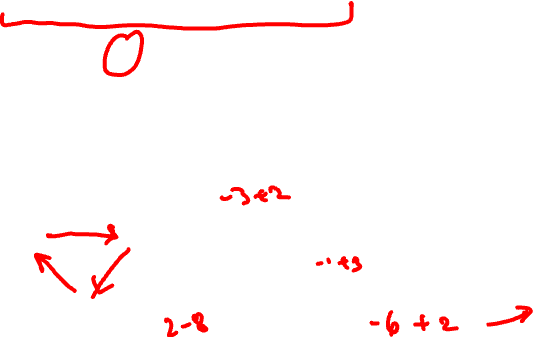 0
-3+2
-1+3
2-8
-6+2